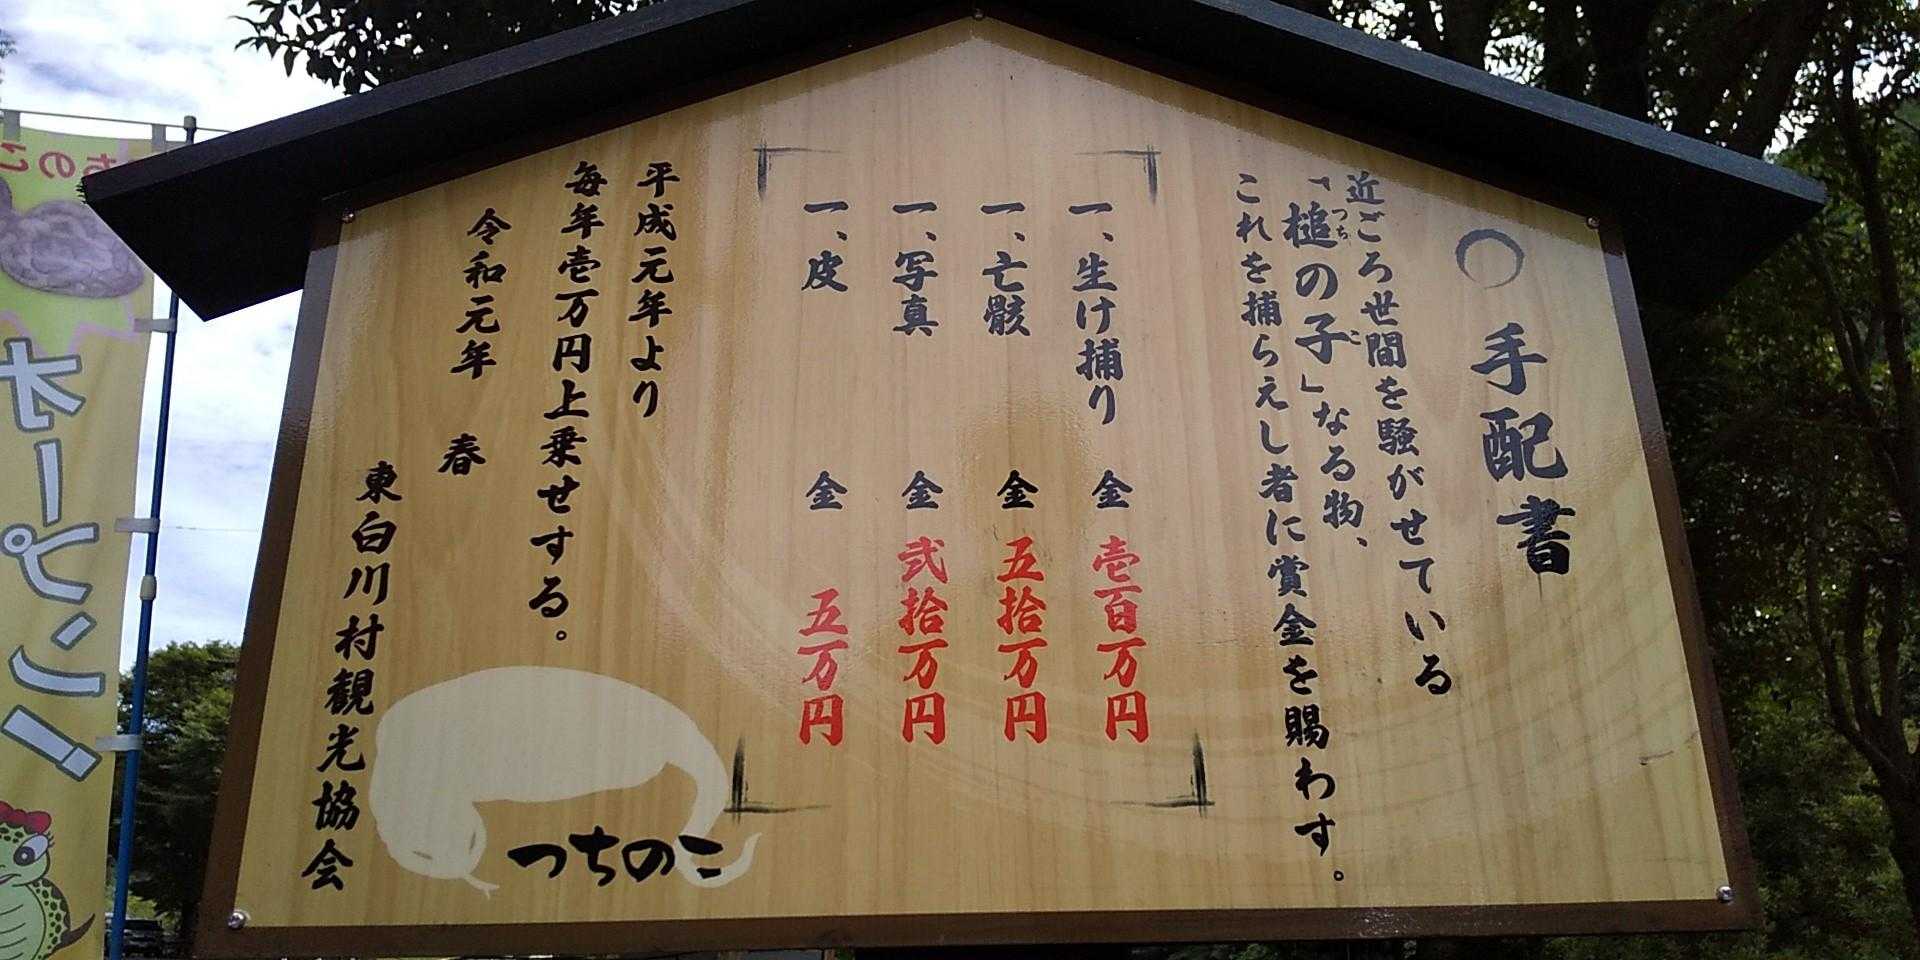 手配書
近ごろ世間を騒がせている
「槌の子」なる物、
つち こ
これを捕らえし者に賞金を賜わす。
一、生け捕り 金 壱百万円
一、亡骸 金 五拾万円
一、写真 金 弐拾万円
一、皮 金 五万円
平成元年より
毎年壱万円上乗せする。
令和元年 春
東白川村観光協会
つちのこ
ちのこ
オープン!